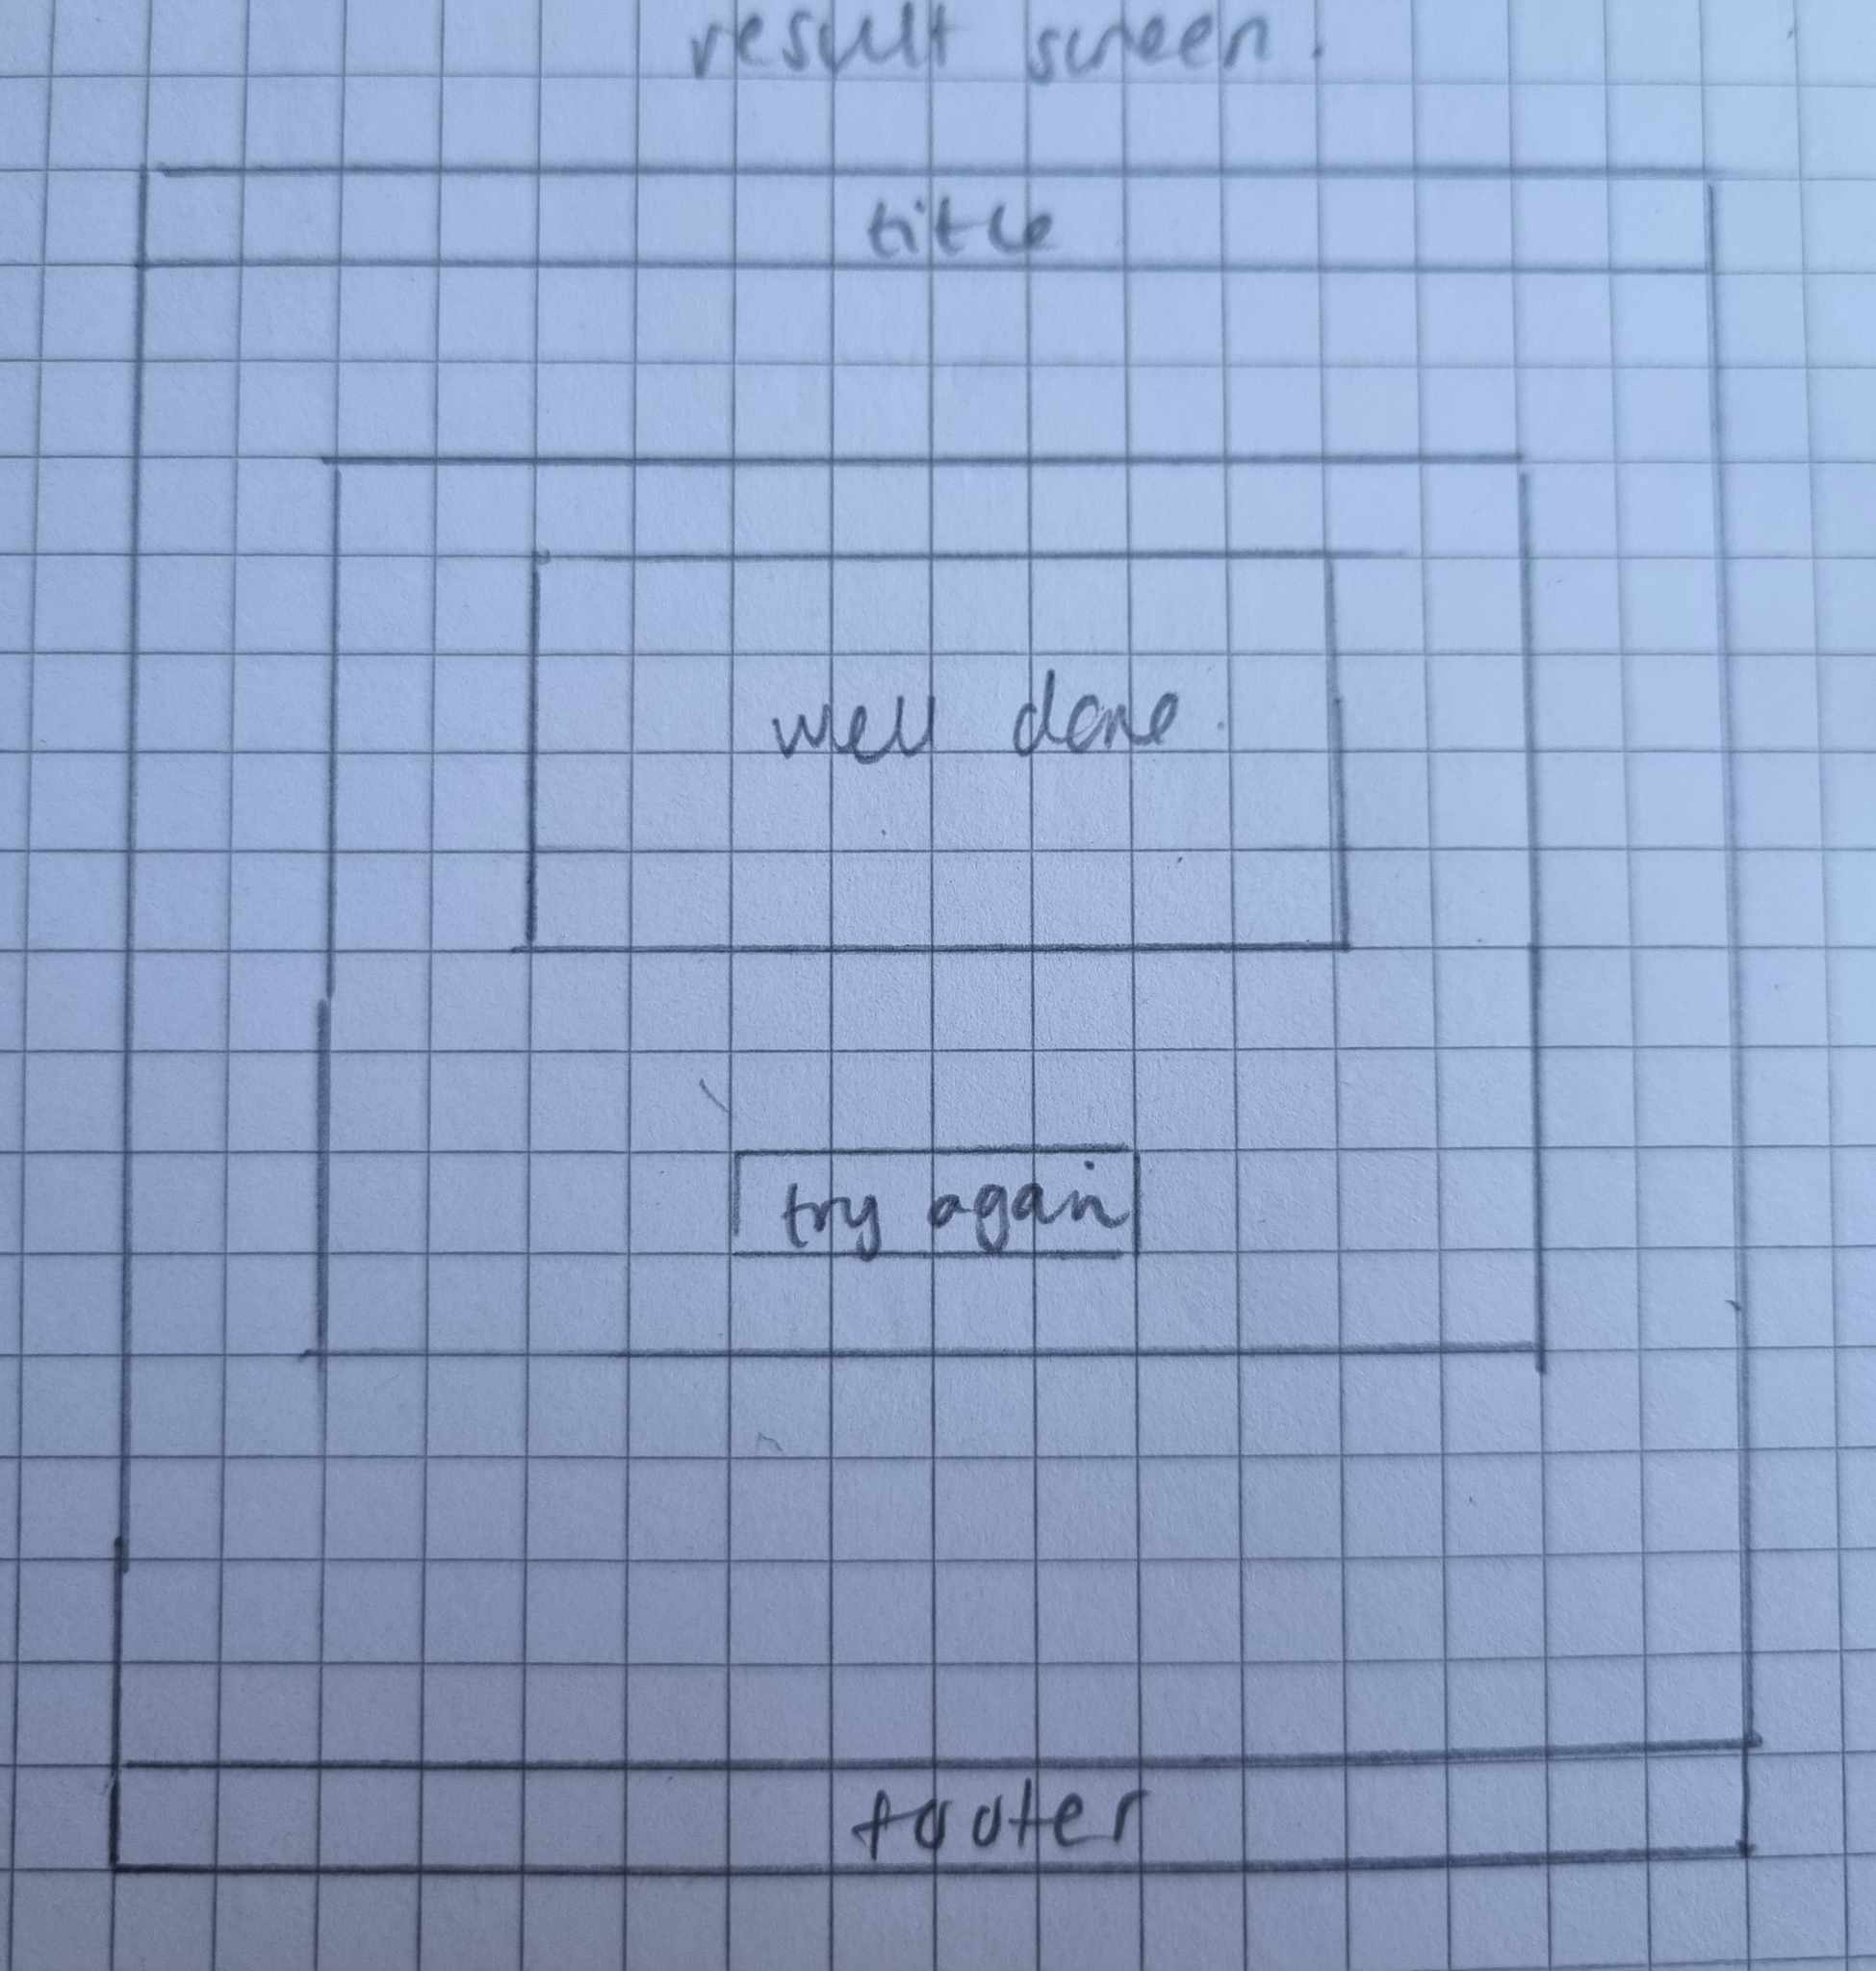 result screen.
title
well done.
try again
footer